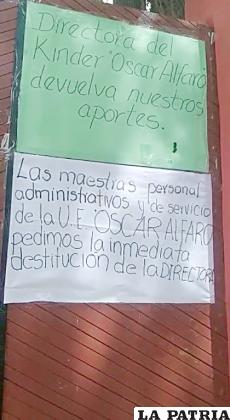 Directora del
Kinder "Oscar Alfaro"
devuelva nuestros
aportes.
Las maestras personal
administrativos y de servicio
de la U.E. OSCAR ALFARO
pedimos la inmediata
destitución de la DIRECTORA
LA PATRIA